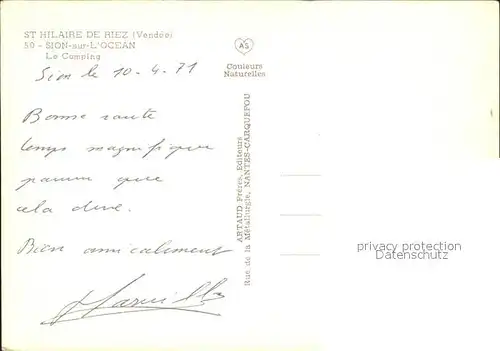 ST HILAIRE DE RIEZ (Vendée)
50 - SION-sur-L'OCEAN
Le Camping
Sion le 10-4.71
Bonne route
temps magnifique
pourvu que
cela dure.
Bien amicalement
AS
Couleurs
Naturelles
ARTAUD Frères, Editeurs
Rue de la Métallurgie, NANTES-CARQUEFOU
privacy protection
Datenschutz